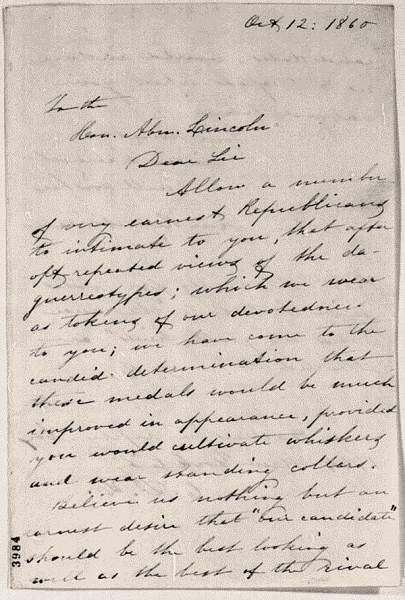 Oct 12: 1860
To the
Hon. Abm. Lincoln
Dear Sir
Allow a number
of very earnest Republicans
to intimate to you, that after
oft repeated views of the da-
guerreotypes; which we wear
as tokens of our devotedness
to you; we have come to the
candid determination that
these medals would be much
improved in appearance, provided
you would cultivate whiskers
and wear standing collars.
Believe us nothing but an
earnest desire that "our candidate"
should be the best looking as
well as the best of the rival
3984